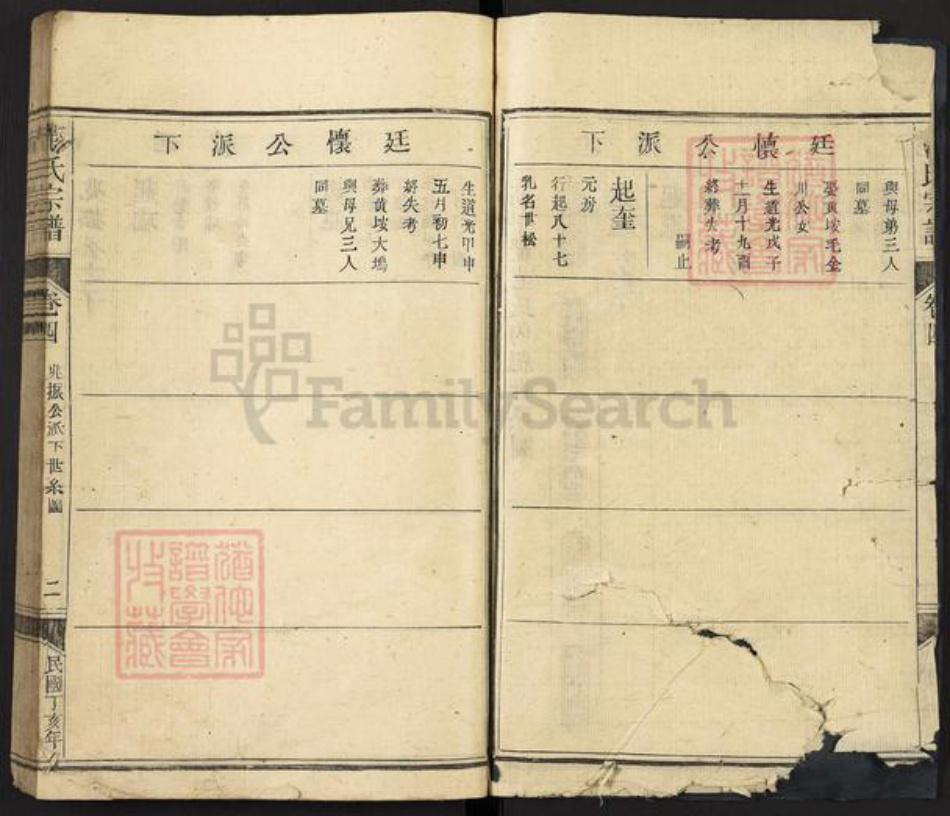 廷懷公派下
與母弟三人
同墓
娶黄垵毛全
川公女
生道光戊子
十二月十九酉
終葬失考
嗣止
起奎
元房
行起八十七
乳名世松
廷懷公派下
生道光甲申
五月初七申
終失考
葬黄垵大塢
與母兄三人
同墓
氏宗譜
卷四
兆振公派下世系圖
二
民國丁亥年
FamilySearch